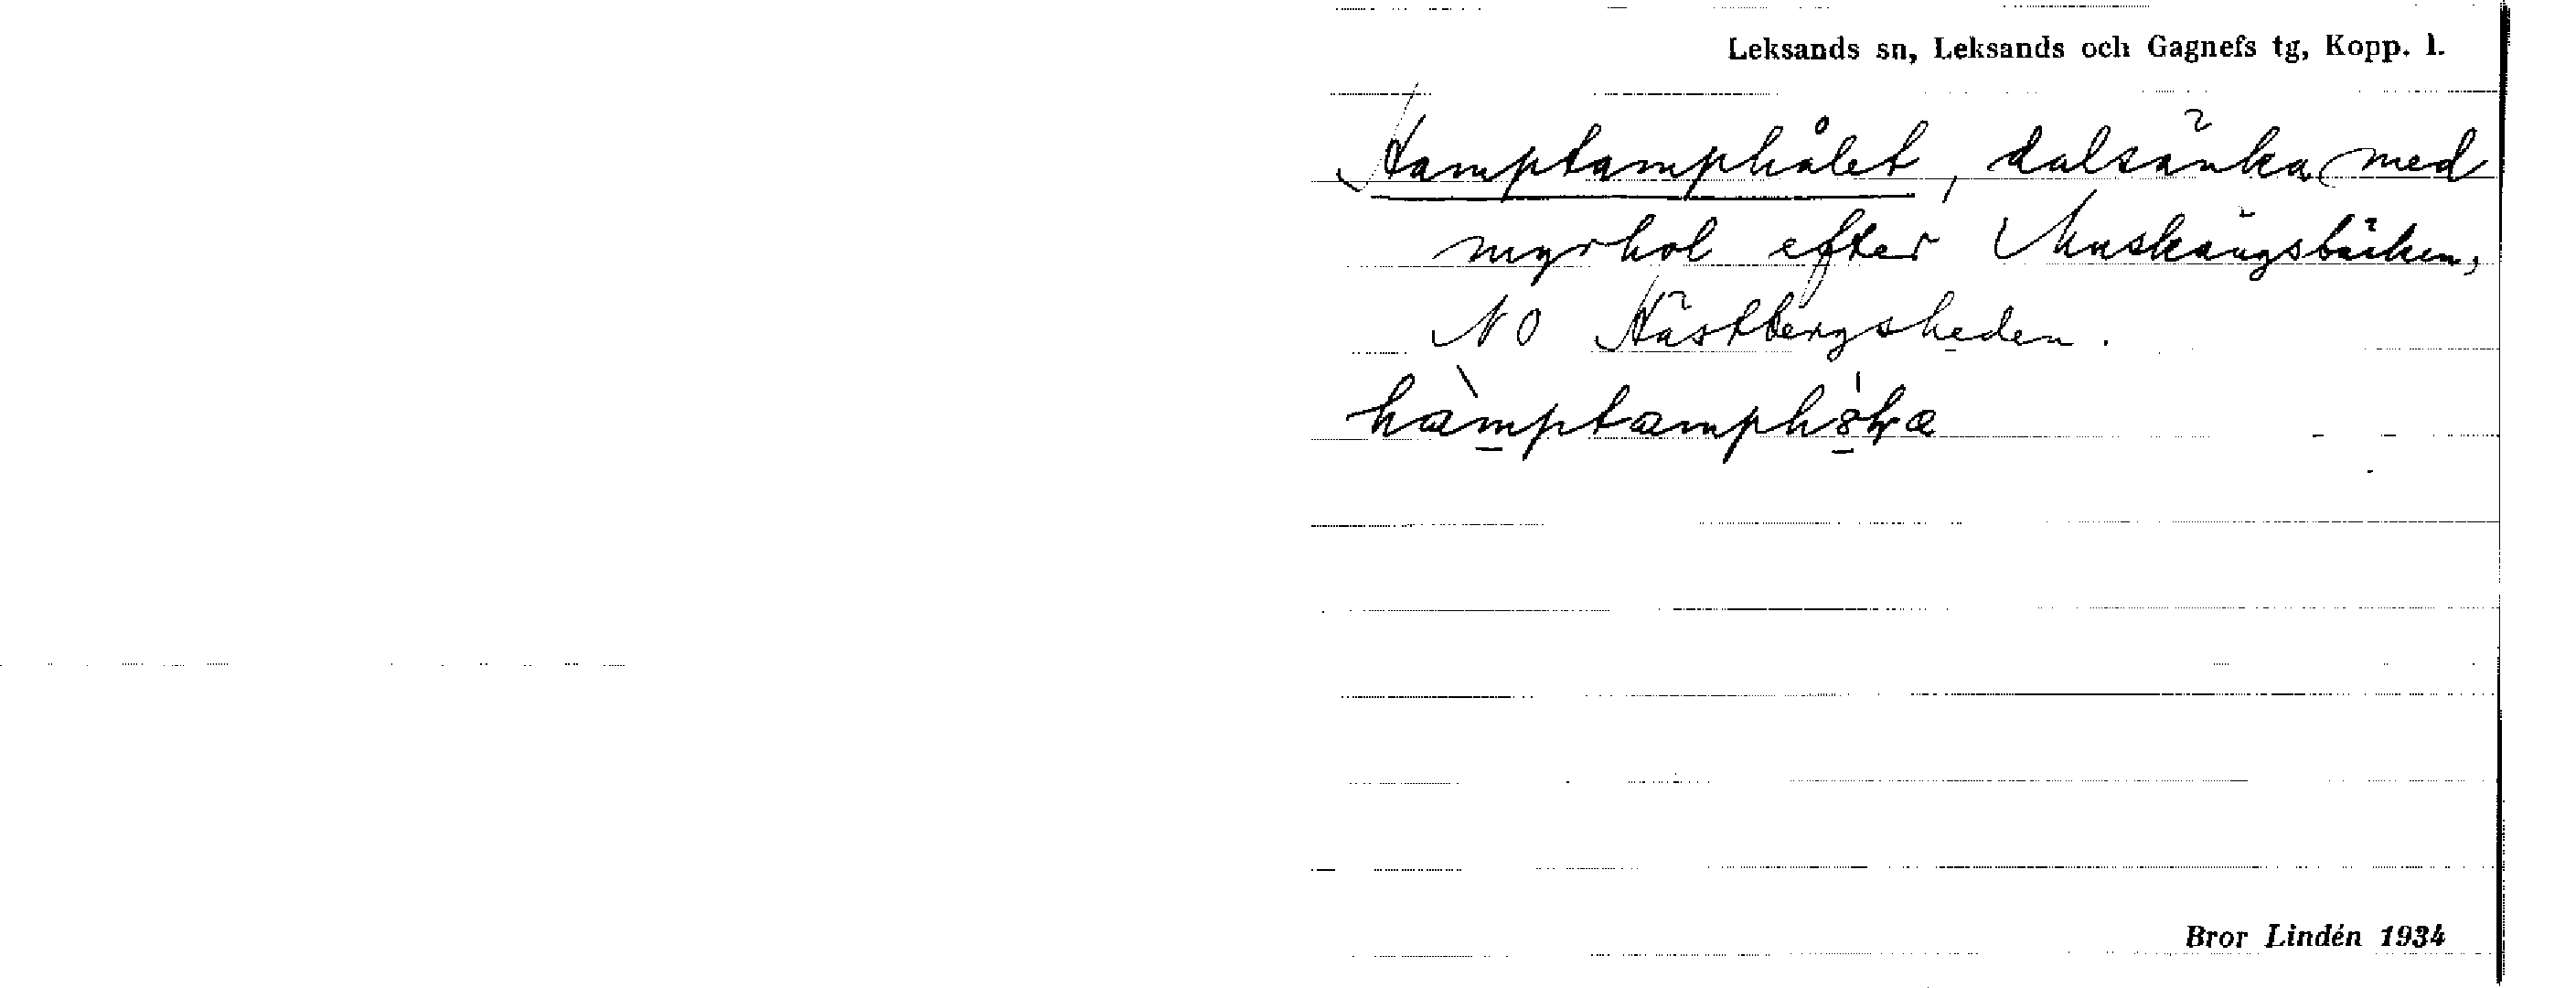 Leksands sn, Leksands och Gagnefs tg, Kopp. l.
Hamptamphålet, dalsänka med
myrhol efter Muskängsbäcken,
NO Hästbergsheden.
Bror Lindén 1934